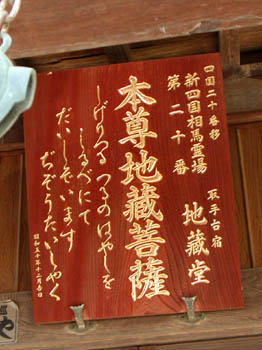 四国二十番移
新四国相馬霊場
第二十番
取手古宿
地蔵堂
本尊地蔵菩薩
しげりつる つるのはやしを
しるべにて
だいしぞいます
ぢぞうたいしやく
昭和五十年十二月吉日
や